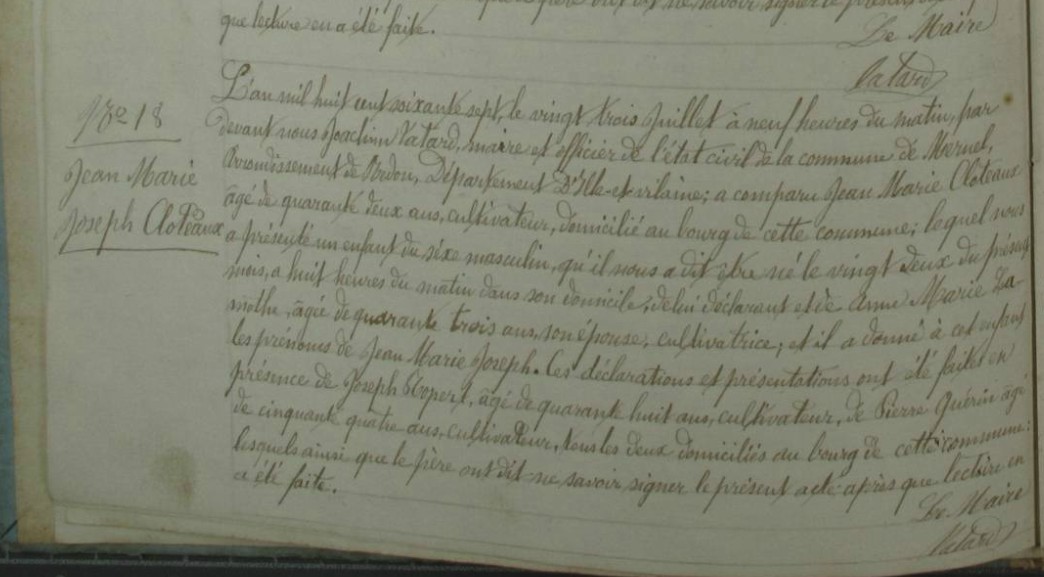 que lecture en a été faite.
Le Maire
Patard
N° 18
Jean Marie
Joseph Cloteaux
L'an mil huit cent soixante sept, le vingt trois juillet à neuf heures du matin, par
devant nous Joachim Patard, maire et officier de l'état civil de la commune de Mernel,
Arrondissement de Redon, Département D'Ille-et-vilaine; a comparu Jean Marie Cloteaux
âgé de quarante deux ans, cultivateur, domicilié au bourg de cette commune; lequel nous
a présenté un enfant du séxe masculin, qu'il nous a dit être né le vingt deux du présent
mois, a huit heures du matin dans son domicile, de lui déclarant et de Anne Marie La-
mothe, âgée de quarante trois ans, son épouse, cultivatrice; et il a donné à cet enfant
les prénoms de Jean Marie Joseph. Ces déclarations et présentations ont été faites en
présence de Joseph âgé de quarante huit ans, cultivateur, de Pierre Guérin âgé
de cinquante quatre ans, cultivateur, tous les deux domiciliés au bourg de cette commune:
lesquels ainsi que le père ont dit ne savoir signer le présent acte après que lecture en
a été faite.
Le Maire
Patard